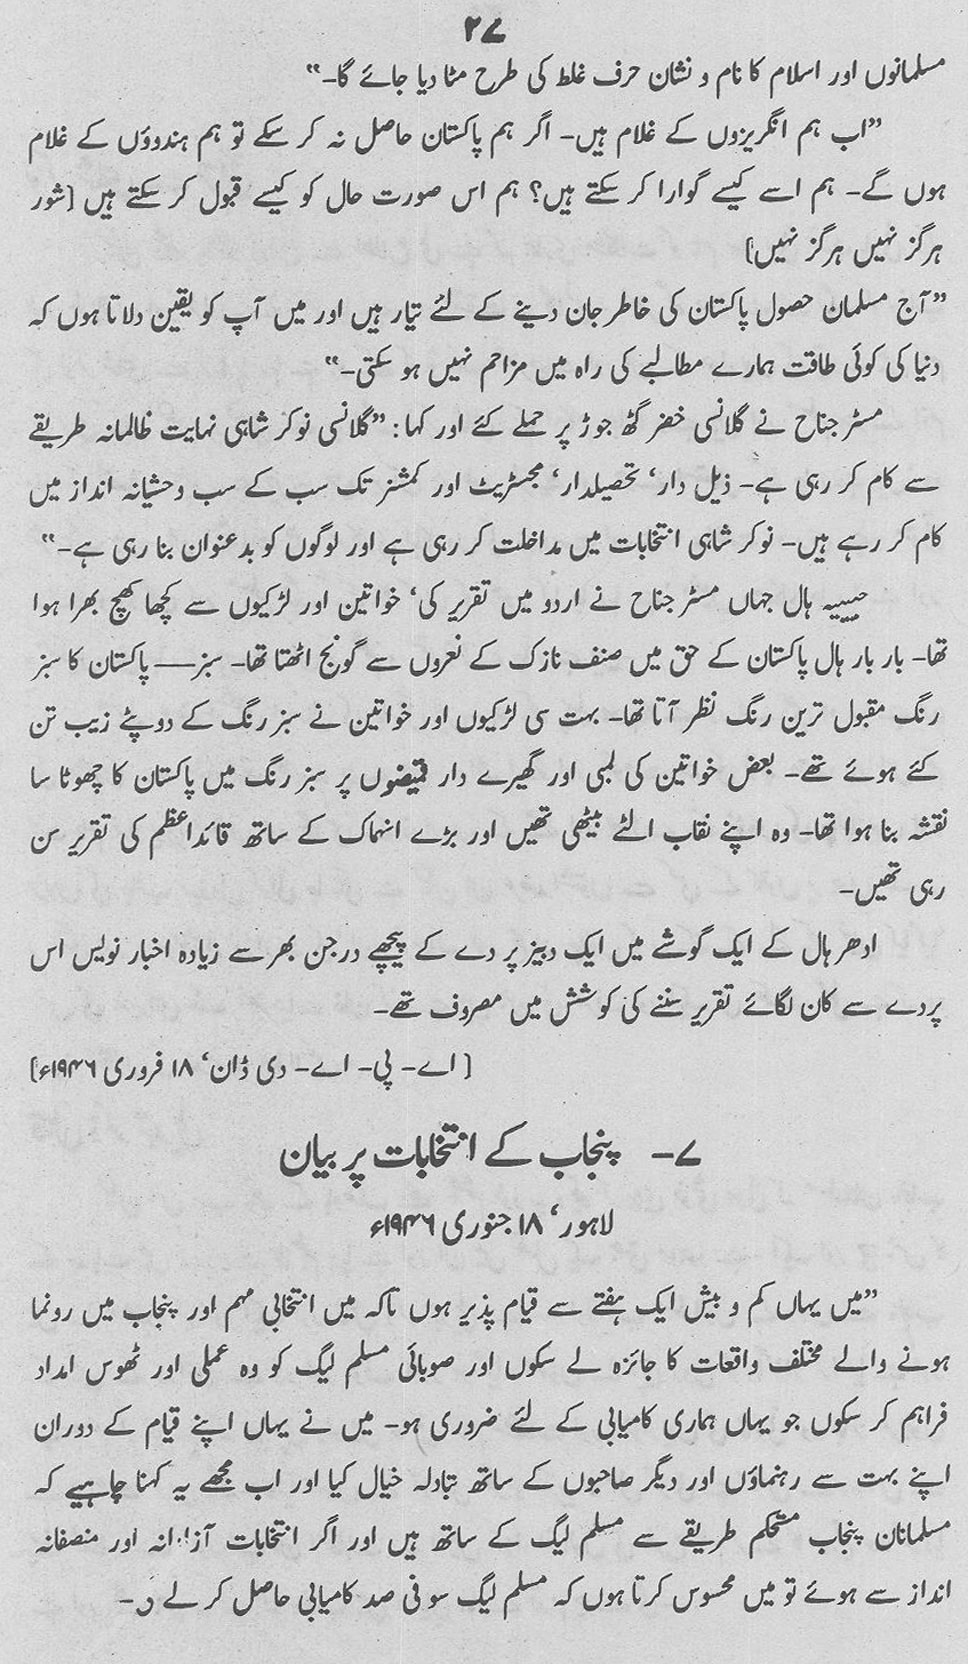 ۲۷
مسلمانوں اور اسلام کا نام و نشان حرف غلط کی طرح مٹا دیا جائے گا۔“
”اب ہم انگریزوں کے غلام ہیں۔ اگر ہم پاکستان حاصل نہ کر سکے تو ہم ہندوؤں کے غلام
ہوں گے۔ ہم اسے کیسے گوارا کر سکتے ہیں؟ ہم اس صورت حال کو کیسے قبول کر سکتے ہیں [شور
ہرگز نہیں ہرگز نہیں]
”آج مسلمان حصول پاکستان کی خاطر جان دینے کے لئے تیار ہیں اور میں آپ کو یقین دلاتا ہوں کہ
دنیا کی کوئی طاقت ہمارے مطالبے کی راہ میں مزاحم نہیں ہو سکتی۔“
مسٹر جناح نے گلانسی خضر گٹھ جوڑ پر حملے کئے اور کہا: ”گلانسی نوکر شاہی نہایت ظالمانہ طریقے
سے کام کر رہی ہے۔ ذیل دار‘ تحصیلدار‘ مجسٹریٹ اور کمشنر تک سب کے سب وحشیانہ انداز میں
کام کر رہے ہیں۔ نوکر شاہی انتخابات میں مداخلت کر رہی ہے اور لوگوں کو بدعنوان بنا رہی ہے۔“
حبیبیہ ہال جہاں مسٹر جناح نے اردو میں تقریر کی‘ خواتین اور لڑکیوں سے کھچا کھچ بھرا ہوا
تھا۔ بار بار ہال پاکستان کے حق میں صنف نازک کے نعروں سے گونج اٹھتا تھا۔ سبز — پاکستان کا سبز
رنگ مقبول ترین رنگ نظر آتا تھا۔ بہت سی لڑکیوں اور خواتین نے سبز رنگ کے دوپٹے زیب تن
کئے ہوئے تھے۔ بعض خواتین کی لمبی اور گھیرے دار قمیضوں پر سبز رنگ میں پاکستان کا چھوٹا سا
نقشہ بنا ہوا تھا۔ وہ اپنے نقاب الٹے بیٹھی تھیں اور بڑے انہماک کے ساتھ قائداعظم کی تقریر سن
رہی تھیں۔
ادھر ہال کے ایک گوشے میں ایک دبیز پردے کے پیچھے درجن بھر سے زیادہ اخبار نویس اس
پردے سے کان لگائے تقریر سننے کی کوشش میں مصروف تھے۔
[اے۔ پی۔ اے۔ دی ڈان‘ ۱۸ فروری ۱۹۴۶ء]
۷۔ پنجاب کے انتخابات پر بیان
لاہور‘ ۱۸ جنوری ۱۹۴۶ء
”میں یہاں کم و بیش ایک ہفتے سے قیام پذیر ہوں تاکہ میں انتخابی مہم اور پنجاب میں رونما
ہونے والے مختلف واقعات کا جائزہ لے سکوں اور صوبائی مسلم لیگ کو وہ عملی اور ٹھوس امداد
فراہم کر سکوں جو یہاں ہماری کامیابی کے لئے ضروری ہو۔ میں نے یہاں اپنے قیام کے دوران
اپنے بہت سے رہنماؤں اور دیگر صاحبوں کے ساتھ تبادلہ خیال کیا اور اب مجھے یہ کہنا چاہیے کہ
مسلمانان پنجاب مستحکم طریقے سے مسلم لیگ کے ساتھ ہیں اور اگر انتخابات آزادانہ اور منصفانہ
انداز سے ہوئے تو میں محسوس کرتا ہوں کہ مسلم لیگ سو فی صد کامیابی حاصل کر لے